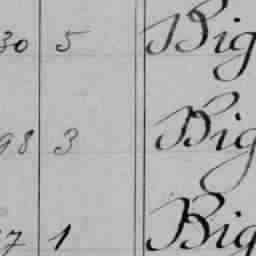 30 5 Big
98 3 Big
7 1 Big